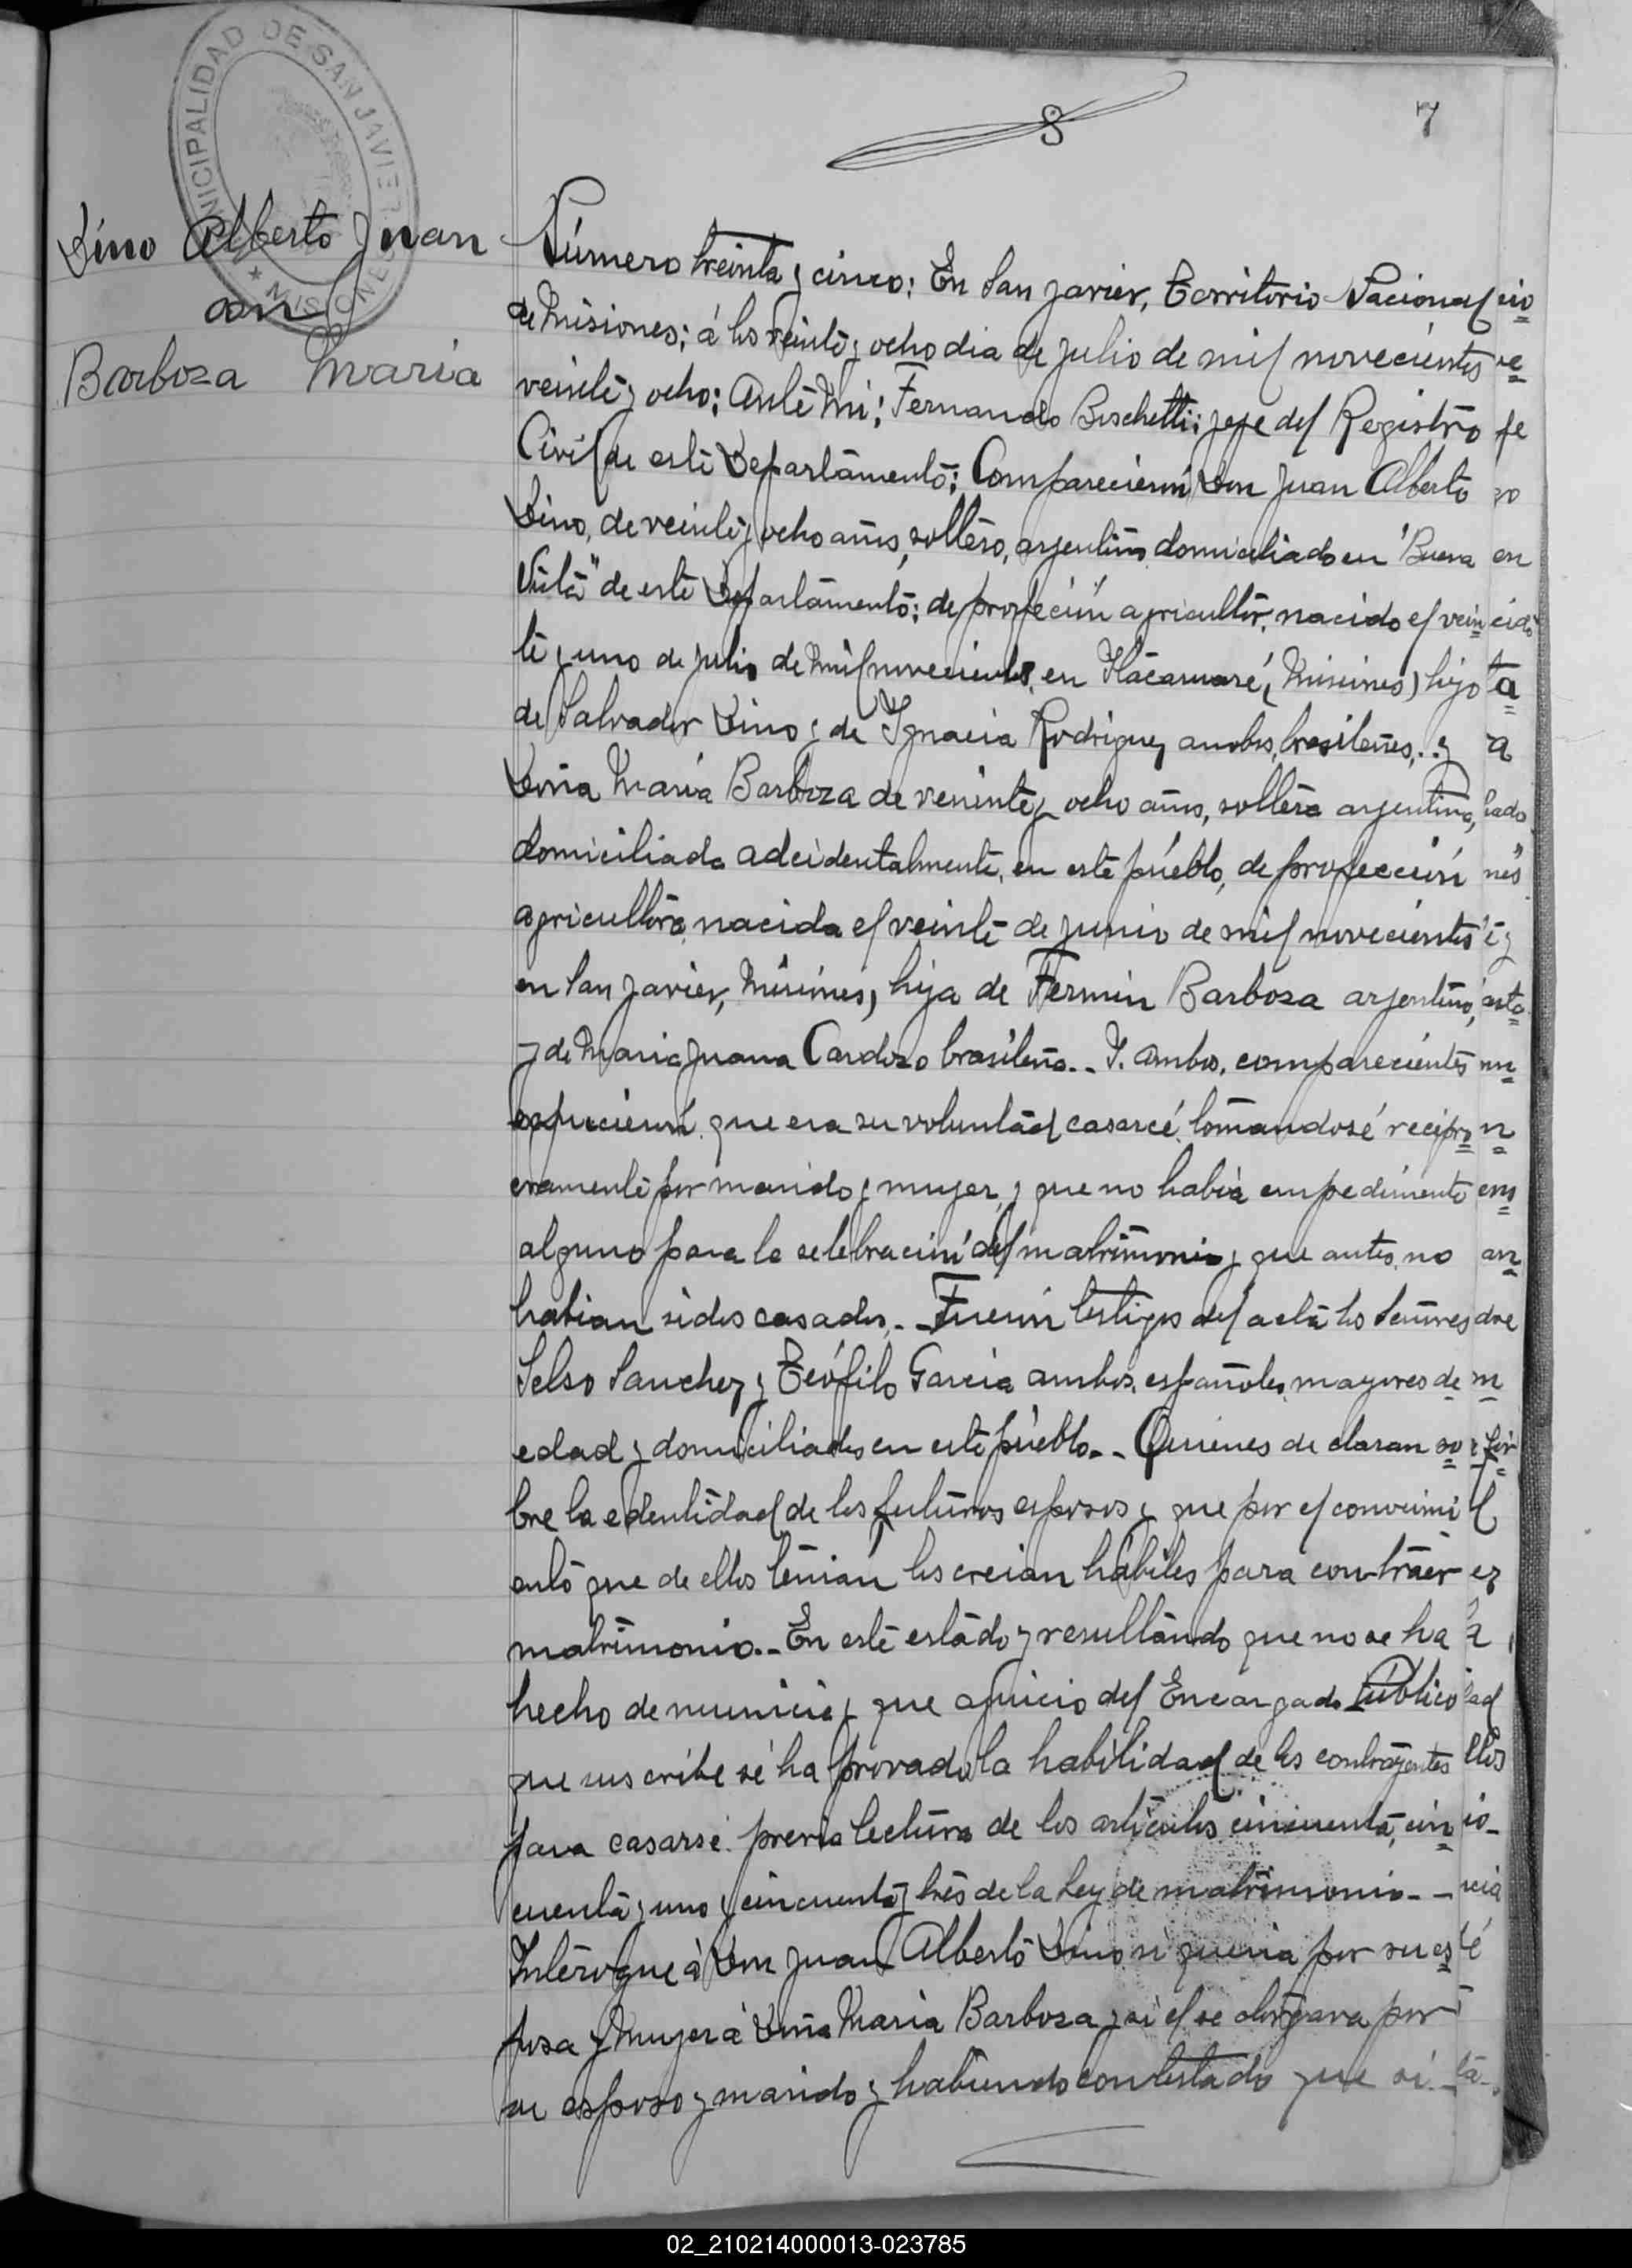 MUNICIPALIDAD DE SAN JAVIER
★ MISIONES
8
7
Lino Alberto Juan
con
Barboza Maria
Número treinta y cinco: En San Javier, Territorio Nacional
de Misiones; á los veinte y ocho dia de Julio de mil novecientos
veinte y ocho: Ante Mi: Fernando Boschetti: jefe del Registro
Civil de este Departamento: Comparecierón Don Juan Alberto
Lino, de veinte y ocho años, soltero, argentino domiciliado en "Buena
Vista" de este Departamento: de profeción agricultor, nacido el vein
te y uno de julio de mil novecientos, en Itacaruaré, (Misiones) hijo
de Salvador Lino y de Ignacia Rodriguez ambos, brasileños,. y
Doña Maria Barboza de veninte y ocho años, soltera argentina,
domiciliada adcidentalmente, en este pueblo, de profección
agricultora nacida el veinte de junio de mil novecientos
en San Javier, Misiones, hija de Fermin Barboza argentino,
y de Maria Juana Cardozo brasileña.- Y. ambos, comparecientes
que era su voluntad casarcé tomandosé recipro
camente por marido y mujer, y que no habia empedimento
alguno para la selebración del matrimonio y que antes no
habian sidos casados.- Fuerón testigos del acta los Señores
Selso Sanchez y Teófilo Garcia ambos, españoles mayores de
edad y domiciliados en este pueblo.- Quienes de claran so
bre la edentidad de los futuros esposos y que por el conocimi
ento que de ellos tenián los creian hábiles para contraer
matrimonio.- En este estado y resultando que no se ha
hecho denuncia y que ajuicio del Encargado Público
que suscribe se ha provado la habilidad de los contrayentes
para casarse. previa lectura de los articulos cincuenta, cin
cuenta y uno y cincuenta y tres de la Ley de matrimonio.-
Interogue á Don Juan Alberto Lino si queria por su es
posa y mujer á Doña Maria Barboza y si el se otorgava por
su esposo y marido y habiendo contestado que si.-
02_210214000013-023785